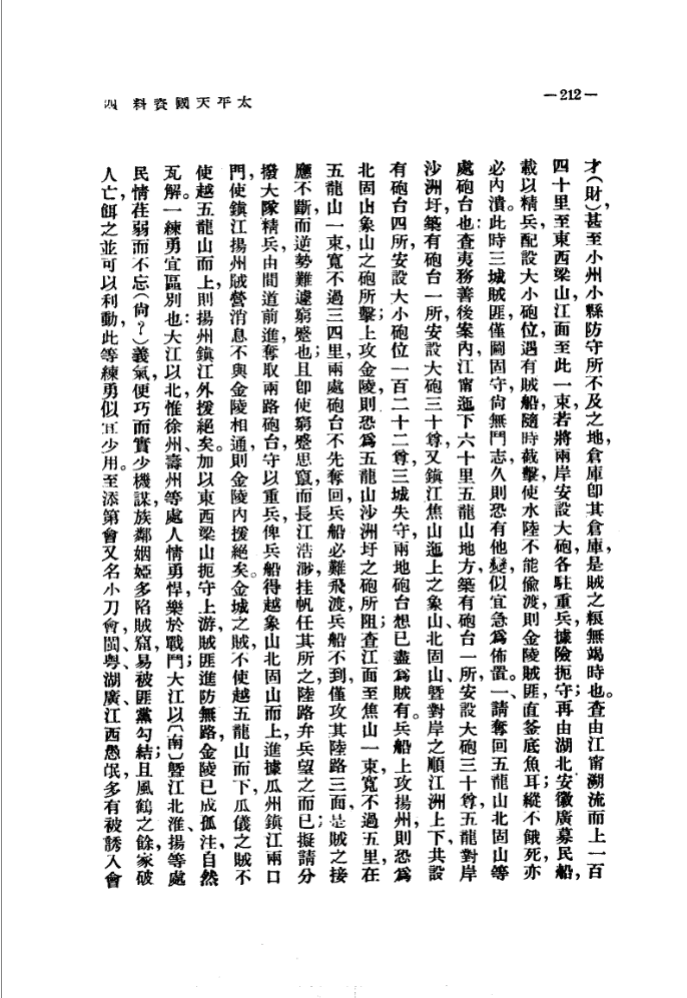 —212—
太平天國資料 四
才(財)，甚至小州小縣防守所不及之地，倉庫卽其倉庫，是賊之糧無竭時也。查由江甯溯流而上一百
四十里至東西梁山，江面至此一束，若將兩岸安設大砲，各駐重兵，據險扼守；再由湖北、安徽廣募民船，
載以精兵，配設大小砲位，遇有賊船，隨時截擊，使水陸不能偸渡，則金陵賊匪，直釜底魚耳，縱不餓死，亦
必內潰。此時三城賊匪，僅圖固守，尙無鬥志，久則恐有他變，似宜急爲佈置。一、請奪回五龍山北固山等
處砲台也：查夷務善後案內，江甯迤下六十里五龍山地方，築有砲台一所，安設大砲三十尊，五龍對岸
沙洲圩，築有砲台一所，安設大砲三十尊，又鎮江焦山迤上之象山、北固山、曁對岸之順江洲上下，共設
有砲台四所，安設大小砲位一百二十二尊，三城失守，兩地砲台想已盡爲賊有。兵船上攻揚州，則恐爲
北固山象山之砲所擊；上攻金陵，則恐爲五龍山沙洲圩之砲所阻；查江面至焦山一束，寬不過五里，在
五龍山一束，寬不過三四里，兩處砲台不先奪回，兵船必難飛渡，兵船不到，僅攻其陸路三面，是賊之接
應不斷，而逆勢難遽窮蹙也；且卽使窮蹙思竄，而長江浩渺，挂帆任其所之，陸路弁兵望之而已；擬請分
撥大隊精兵，由間道前進，奪取兩路砲台，守以重兵，俾兵船得越象山北固山而上，進據瓜州鎮江兩口
門，使鎮江揚州賊營消息不與金陵相通，則金陵內援絕矣。金城之賊，不使越五龍山而下，瓜儀之賊不
使越五龍山而上，則揚州鎮江外援絕矣。加以東西梁山扼守上游，賊匪進防無路，金陵已成孤注，自然
瓦解。一練勇宜區別也：大江以北，惟徐州、壽州等處人情勇悍，樂於戰鬥；大江以〔南〕曁江北淮、揚等處
民情荏弱而不忘(尙？)義氣，便巧而實少機謀，族鄰姻婭多陷賊窟，易被匪黨勾結；且風鶴之餘，家破
人亡，餌之並可以利動，此等練勇似宜少用。至添第會又名小刀會，閩、粵、湖廣、江西愚氓，多有被誘入會